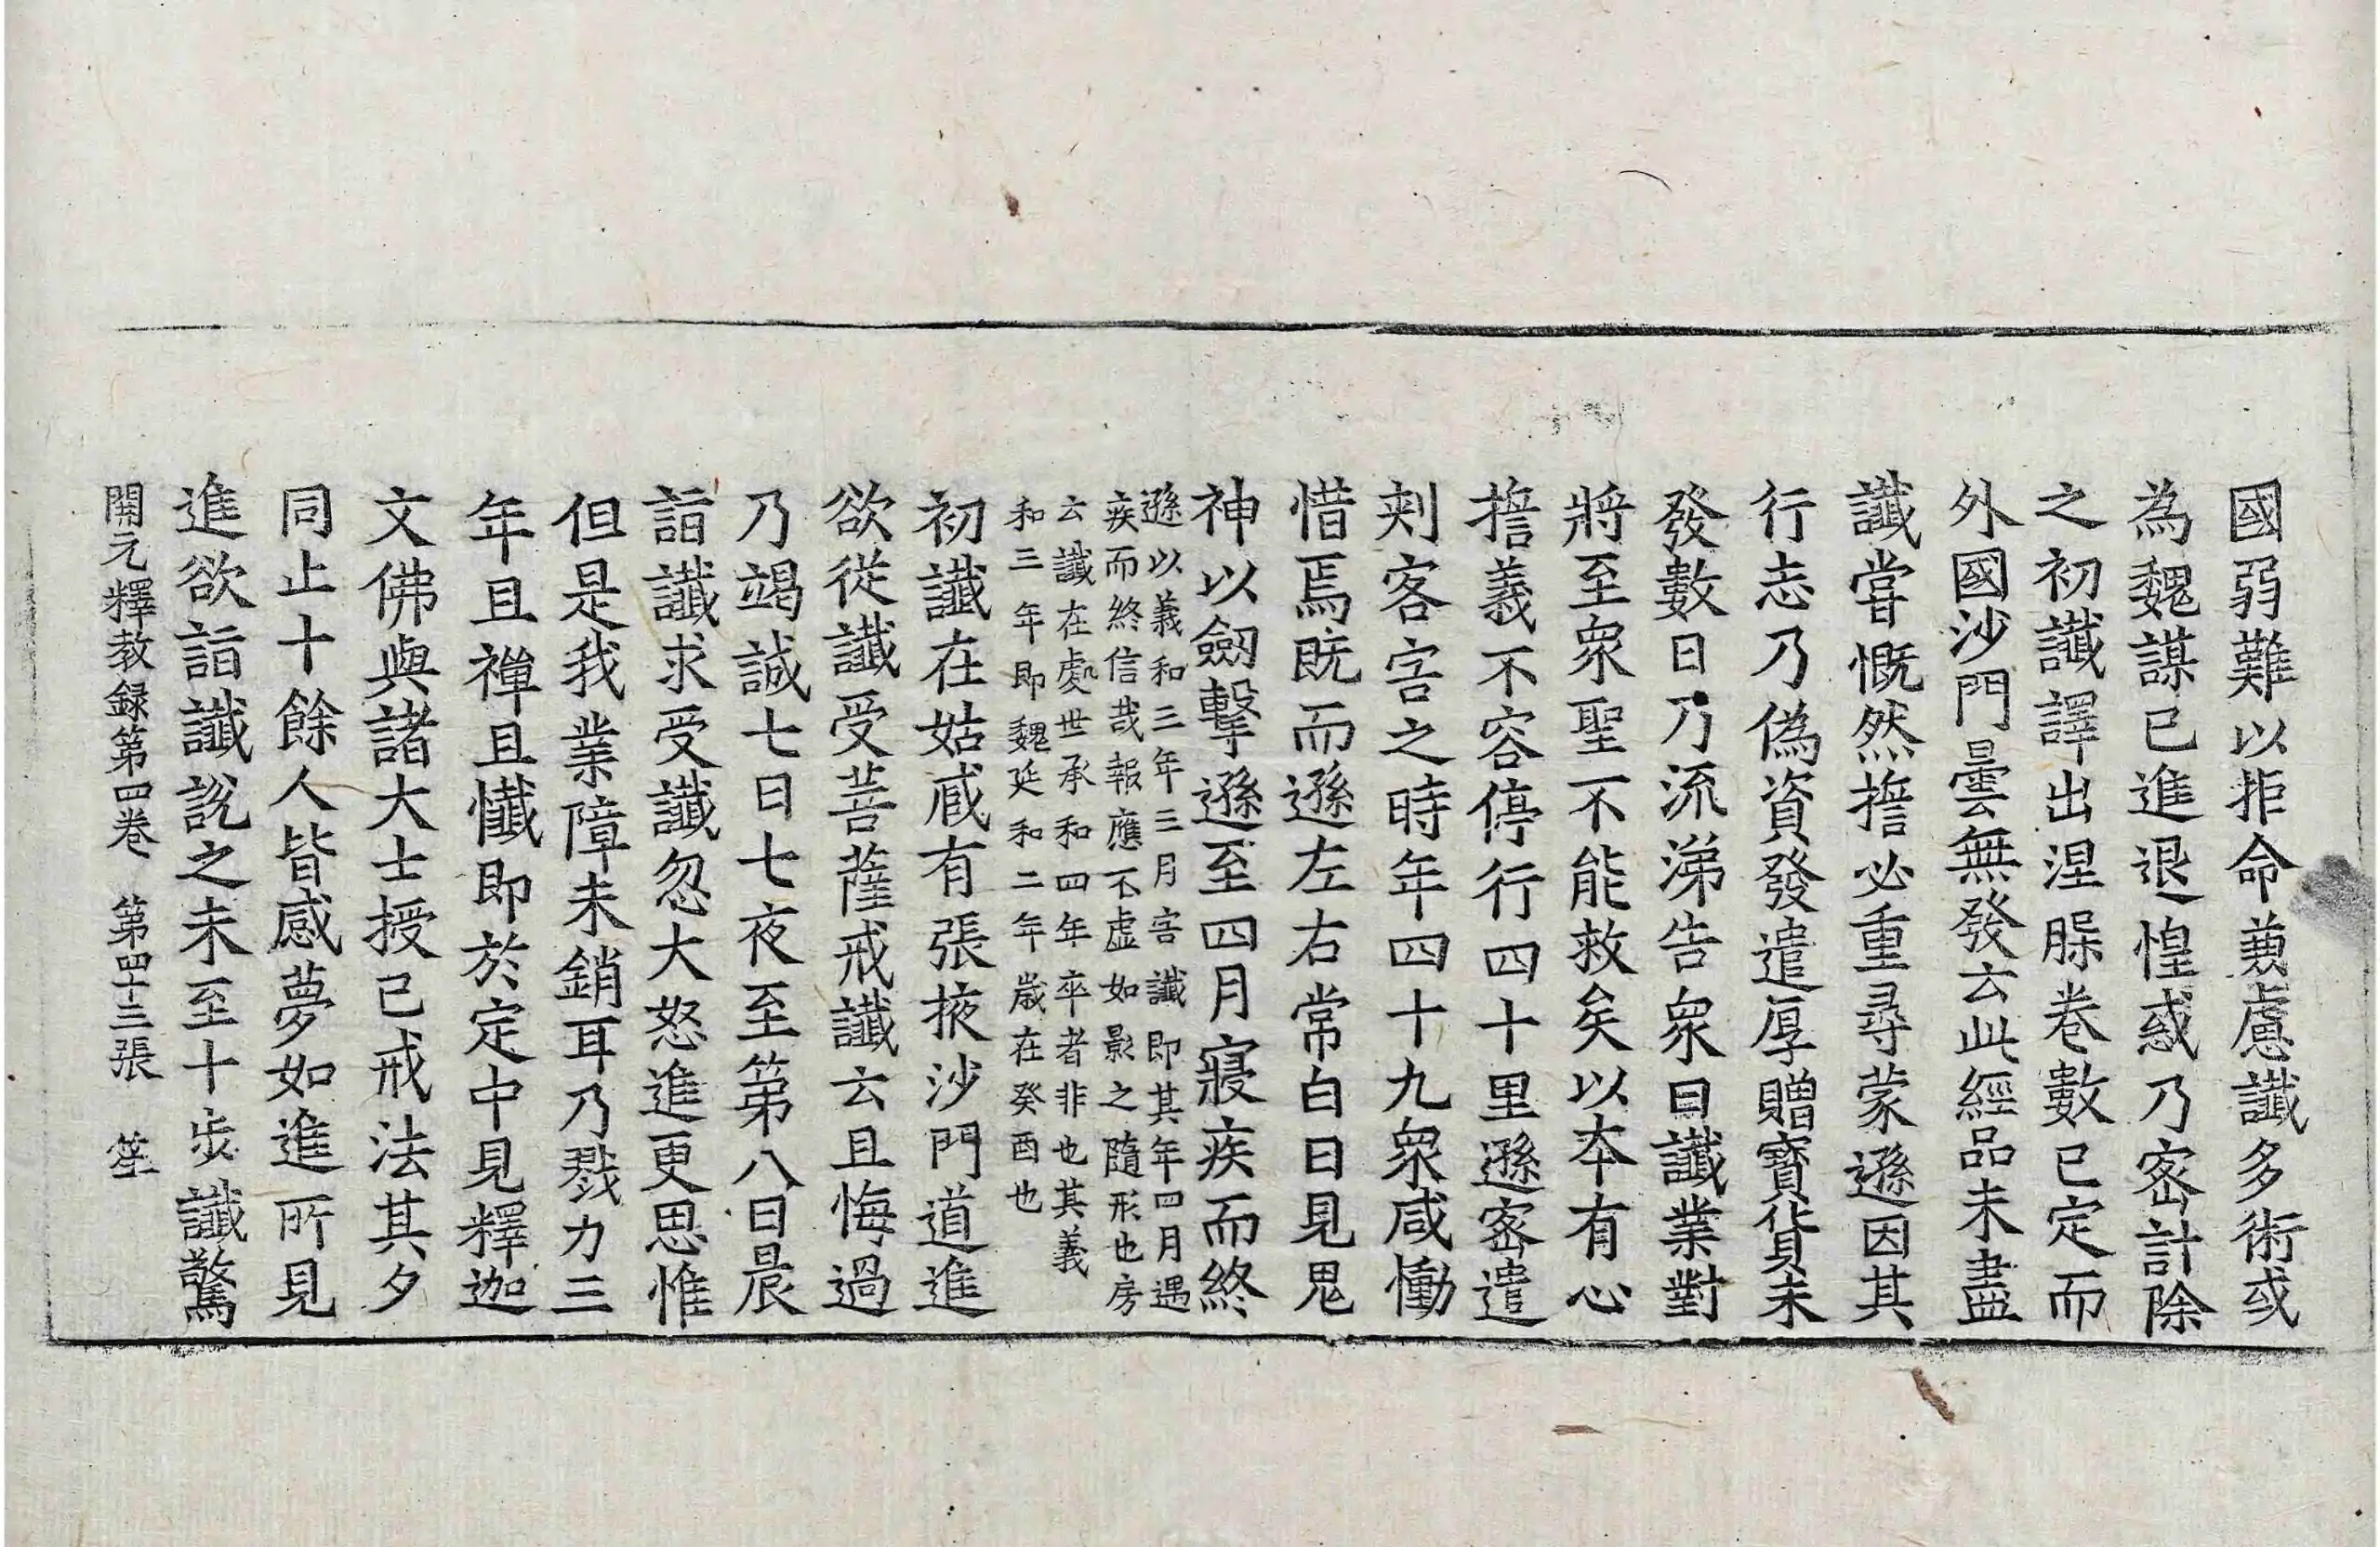 國弱難以拒命兼慮讖多術或
為魏謀已進退惶惑乃密計除
之初讖譯出涅槃卷數已定而
外國沙門曇無發云此經品未盡
讖甞慨然擔必重尋蒙遜因其
行志乃偽資發遣厚贈寳貨未
發數日乃流涕告衆曰讖業對
將至衆聖不能救矣以本有心
擔義不容停行四十里遜密遣
刾客害之時年四十九衆咸慟
惜焉既而遜左右常白日見鬼
神以劒擊遜至四月寢疾而終
遜以義和三年三月害讖即其年四月遇
疾而終信哉報應不虛如影之隨形也房
云讖在處世承和四年卒者非也其義
和三年即魏延和二年歲在癸酉也
初讖在姑臧有張掖沙門道進
欲從讖受菩薩戒讖云且悔過
乃竭誠七日七夜至第八日晨
詣讖求受讖忽大怒進更思惟
但是我業障未銷耳乃戮力三
年且禪且懺即於定中見釋迦
文佛與諸大士授己戒法其夕
同止十餘人皆感夢如進所見
進欲詣讖說之未至十步讖驚
開元釋教録第四卷 第四十三張 笙